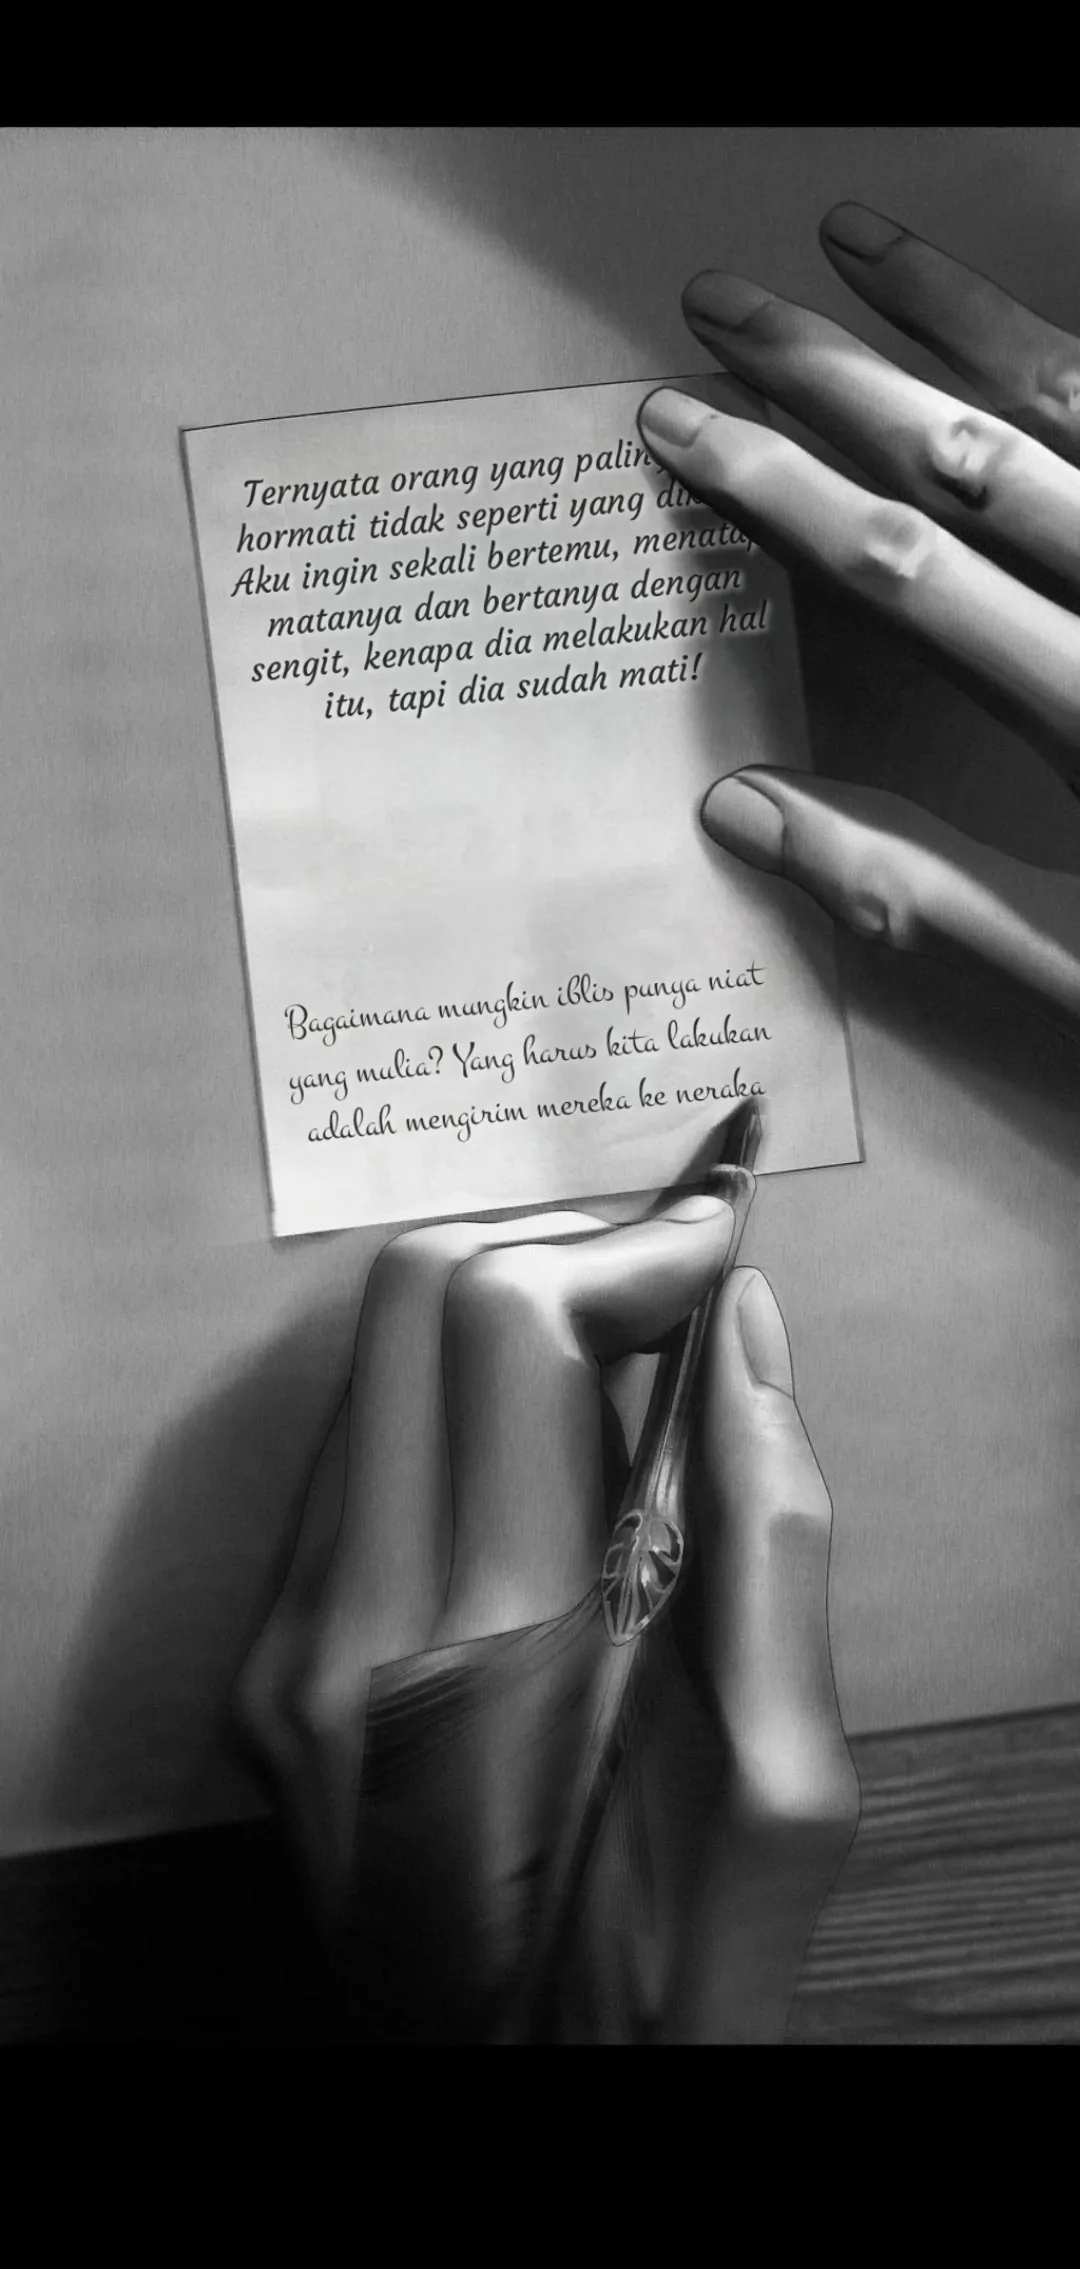 Ternyata orang yang
hormati tidak seperti yang
Aku ingin sekali bertemu, menatap
matanya dan bertanya dengan
sengit, kenapa dia melakukan hal
itu, tapi dia sudah mati!
Bagaimana mungkin iblis punya niat
yang mulia? Yang harus kita lakukan
adalah mengirim mereka ke neraka